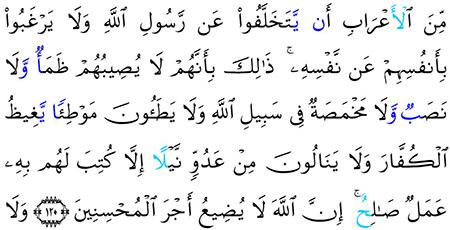 مِّنَ ٱلْأَعْرَابِ أَن يَتَخَلَّفُوا۟ عَن رَّسُولِ ٱللَّهِ وَلَا يَرْغَبُوا۟
بِأَنفُسِهِمْ عَن نَّفْسِهِۦ ۚ ذَٰلِكَ بِأَنَّهُمْ لَا يُصِيبُهُمْ ظَمَأٌ وَلَا
نَصَبٌ وَلَا مَخْمَصَةٌ فِى سَبِيلِ ٱللَّهِ وَلَا يَطَـُٔونَ مَوْطِئًا يَغِيظُ
ٱلْكُفَّارَ وَلَا يَنَالُونَ مِنْ عَدُوٍّ نَّيْلًا إِلَّا كُتِبَ لَهُم بِهِۦ
عَمَلٌ صَـٰلِحٌ ۚ إِنَّ ٱللَّهَ لَا يُضِيعُ أَجْرَ ٱلْمُحْسِنِينَ ﴿١٢٠﴾ وَلَا